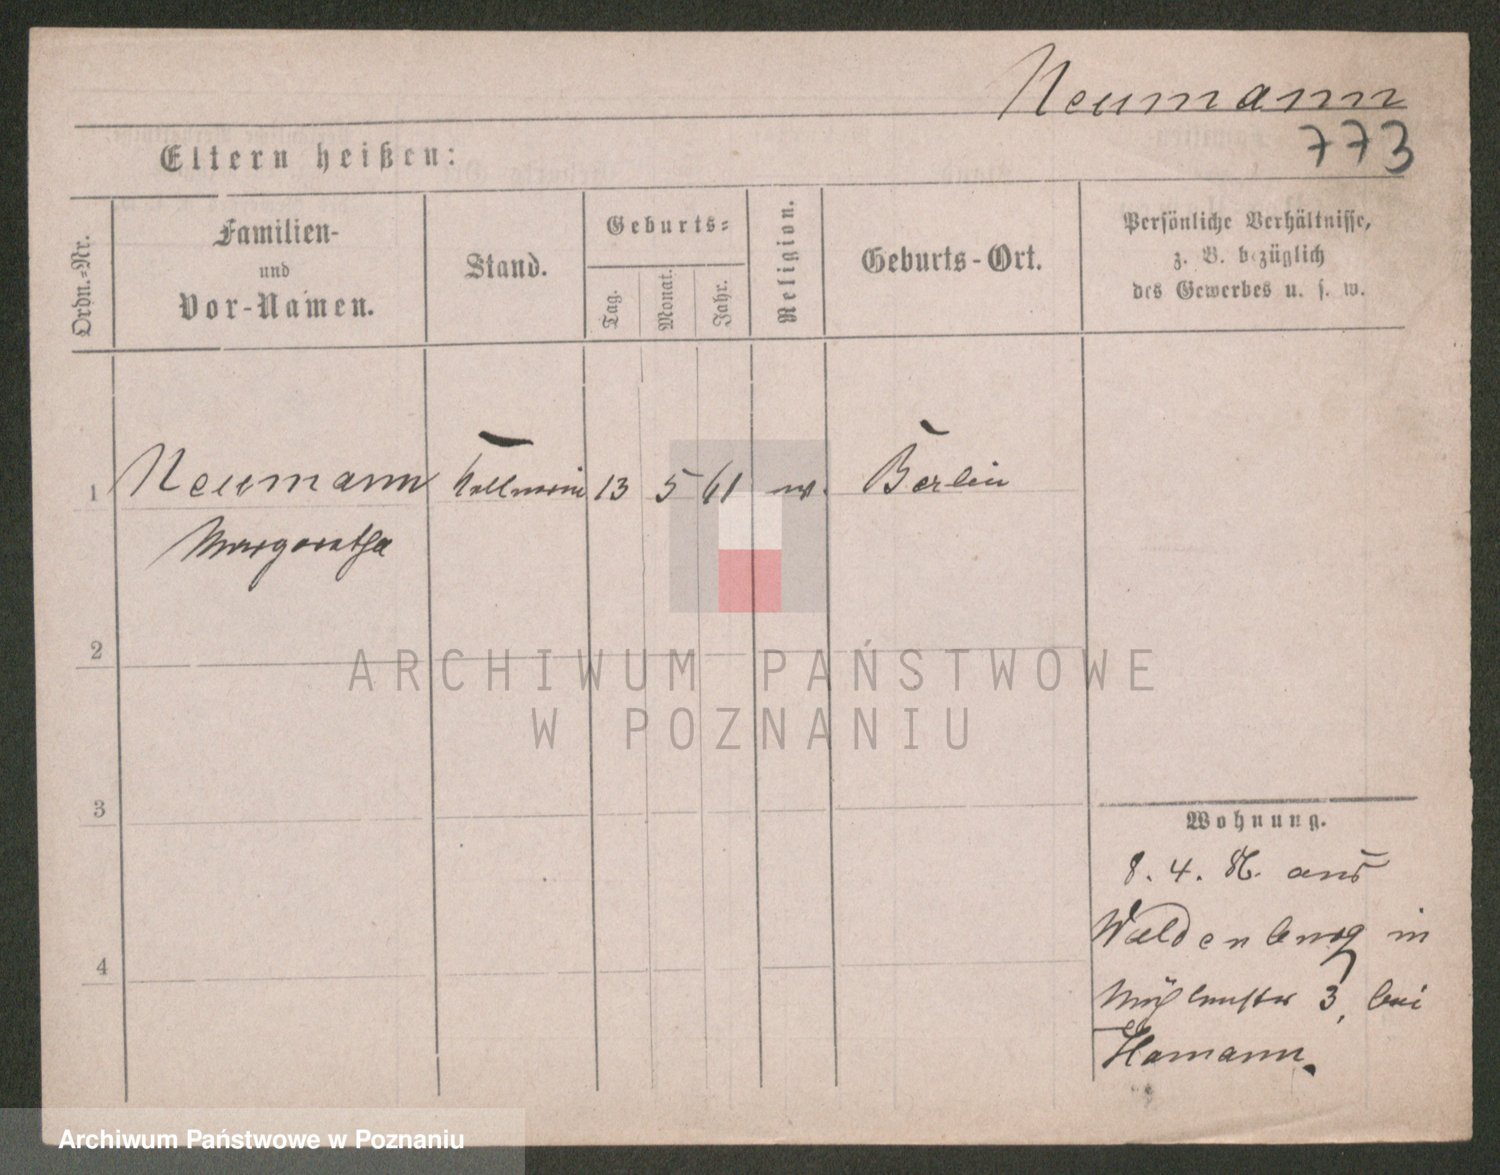 Neumann
773
Eltern heißen:
Ordn.-Nr.
Familien-
und
Vor-Namen.
Stand.
Geburts-
Tag.
Monat.
Jahr.
Religion.
Geburts-Ort.
Persönliche Verhältnisse,
z. B. bezüglich
des Gewerbes u. s. w.
1 Neumann 13 5 61 Berlin
Margaretha
2
3
4
Wohnung.
8. 4. 86. aus
Waldenburg in
Mühlenstr 3, bei
Hamann.
ARCHIWUM PAŃSTWOWE
W POZNANIU
Archiwum Państwowe w Poznaniu